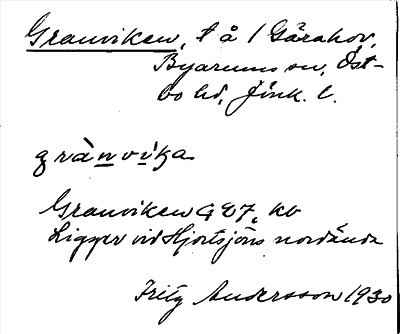 Granviken, t å 1 Gårahov,
Byarums sn, Öst-
bo hd, Jönk. l.
grànvi̇ka
Granviken GE7, kb
Ligger vid Hjortsjöns norrända
Fritz Andersson 1930